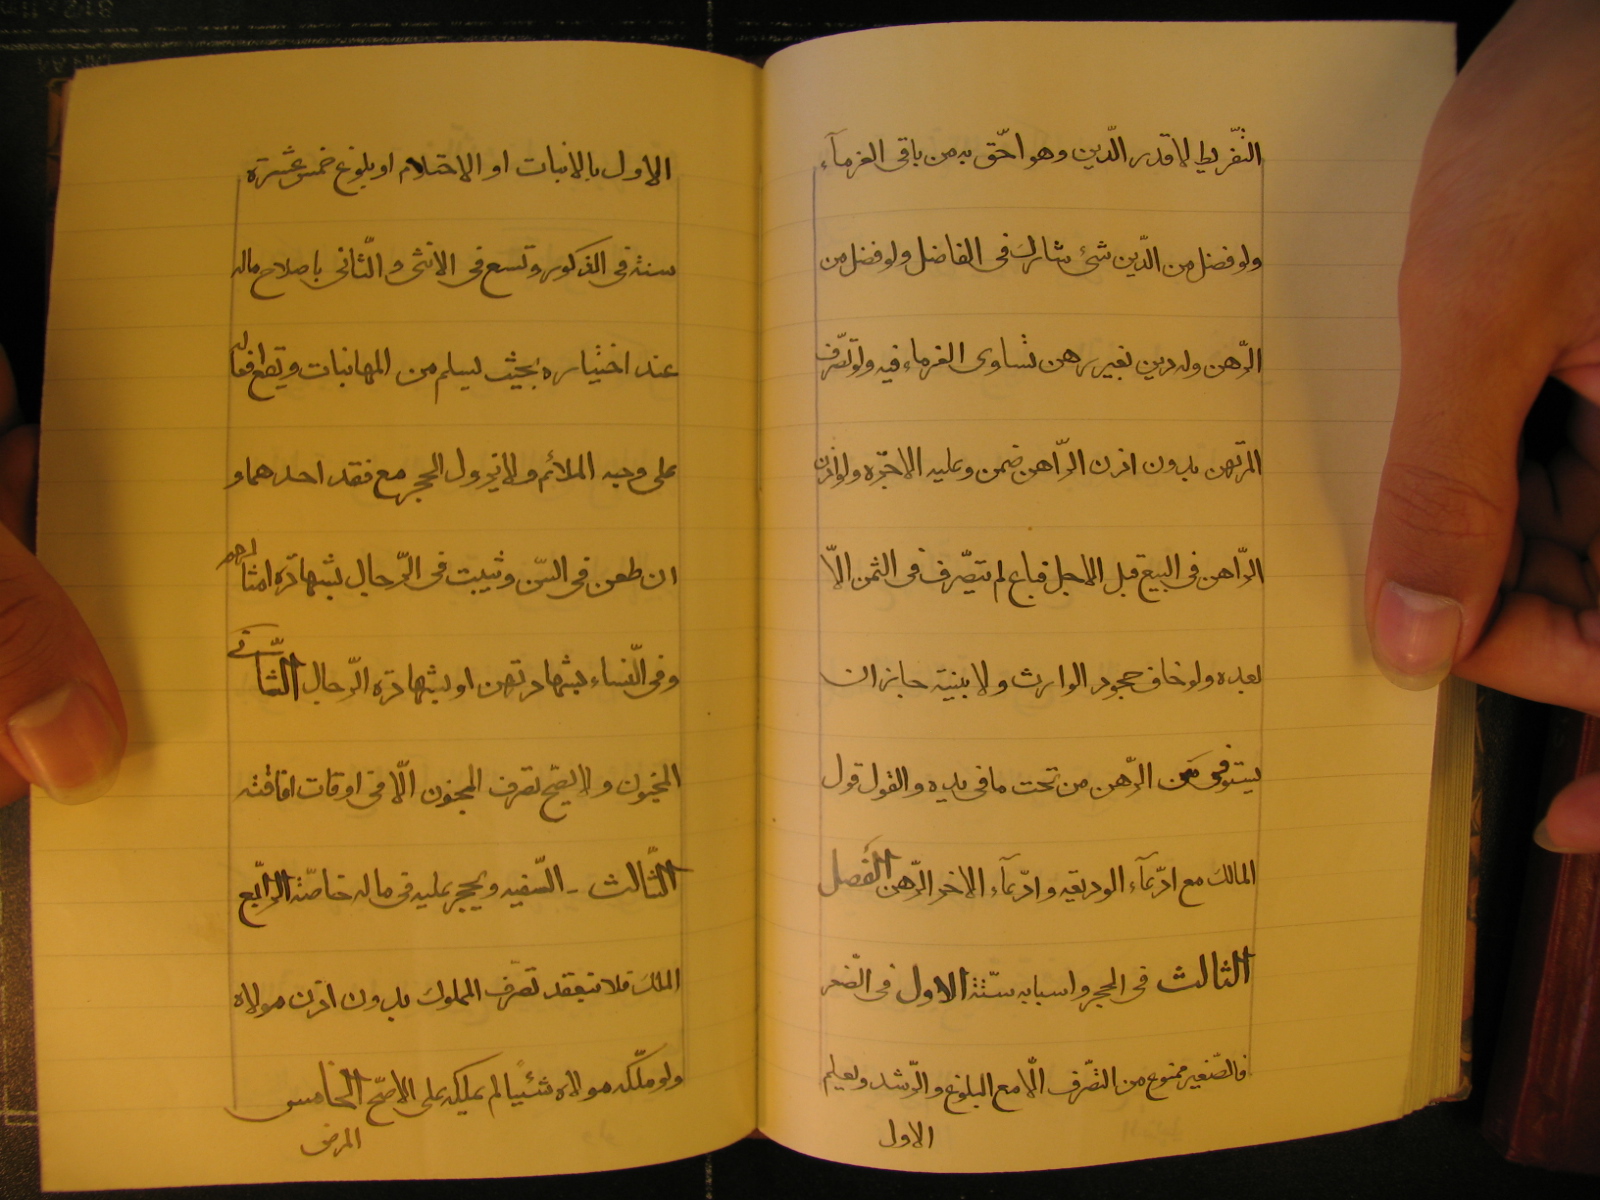 التفريط لا قدر الدّين وهو احّق به من باقى الغرمآء
ولو فضل من الدّين شئ شارك فى الفاضل ولو فضل من
الرّهن وله دين بغير رهن تساوى الغرماء فيه ولو تصّرف
المرتهن بدون اذن الرّاهن ضمن وعليه الاجرة ولو اذن
الرّاهن فى البيع قبل الاجل فباع لم يتصّرف فى الثمن الاّ
بعده ولو خاف جحود الوارث ولا بينة جاز ان
يستوفى من الرّهن من تحت ما فى يده والقول قول
المالك مع ادّعآء الوديعه وادّعآء الاخر الرّهن الفصل
الثالث فى الحجر واسبابه ستّة الاول فى الصّغر
فالصّغير ممنوع من التصّرف الّا مع البلوغ والرّشد ويعلم
الاول
الاول بالانبات او الاحتلام او بلوغ خمس عشرة
سنة فى الذكور وتسع فى الانثى والثّانى باصلاح ماله
عند اختياره بحيث يسلم من المغابنات ويقع افعاله
على وجه الملائم ولا يزول الحجر مع فقد احدهما و
ان طعن فى السّن وثيبت فى الرّجال بشهادة امثالهم
وفى النّساء بشهادتهن او بشهادة الرّجال الثّانى
المجنون ولا يصّح تصرف المجنون الّا فى اوقات افاقته
الثّالث - السّفيه ويحجر عليه فى ماله خاصّة الرّابع
الملك فلا ينعقد تصّرف المملوك بدون اذن مولاه
ولو ملّكه مولاه شئيا لم يملكه على الاصّح الخامس
المرض